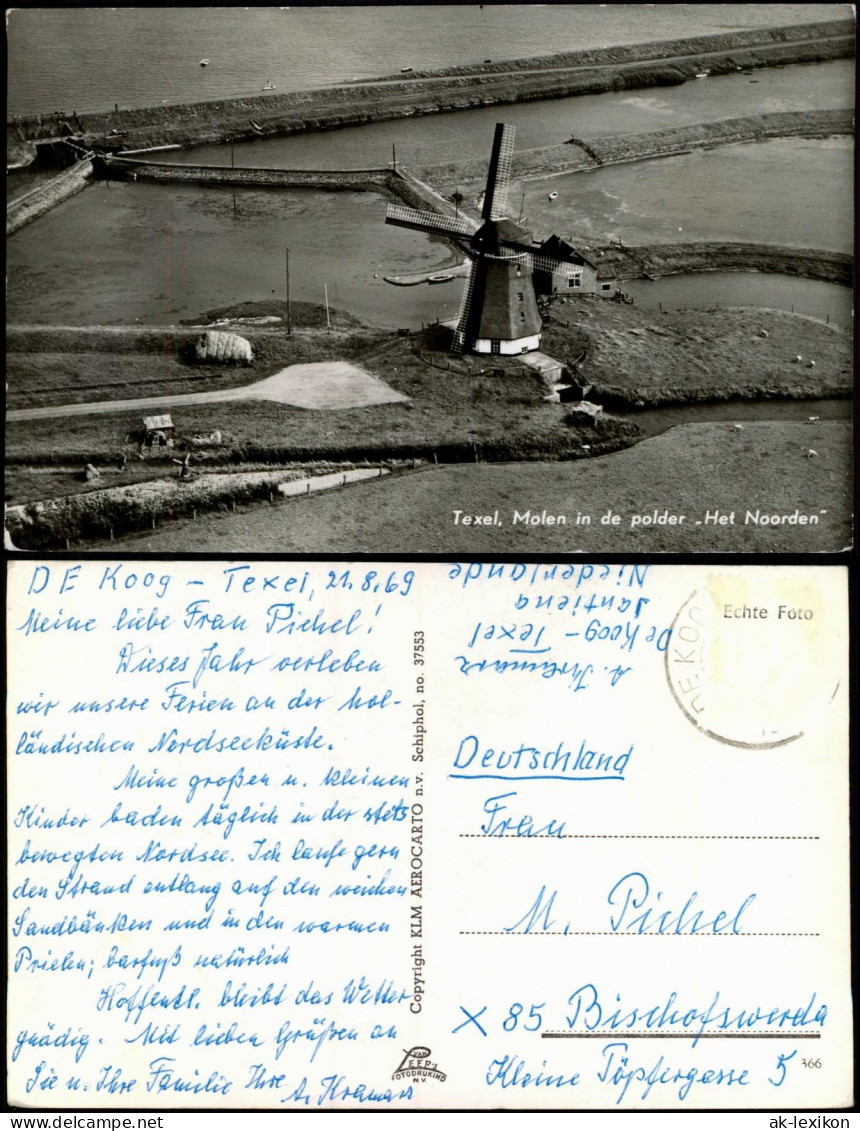 Texel, Molen in de polder „Het Noorden"
DE Koog – Texel, 21.8.69
Meine liebe Frau Pichel!
Dieses Jahr verleben
wir unsere Ferien an der hol-
ländischen Nordseeküste.
Meine großen u. kleinen
Kinder baden täglich in der stets
bewegten Nordsee. Ich laufe gern
den Strand entlang auf den weichen
Sandbänken und in den warmen
Prielen; barfuß natürlich
Hoffentl. bleibt das Wetter
gnädig. Mit lieben Grüßen an
Sie u. Ihre Familie Ihre
A. Kramarz
Copyright KLM AEROCARTO n.v. Schiphol, no. 37553
VAN LEER'S
FOTODRUKIND
N.V.
A. Kramarz
De Koog – Texel
Jantiena
Niederlande
DE KOO
Echte Foto
Deutschland
Frau
M. Pichel
X 85 Bischofswerda
Kleine Töpfergasse 5
366
www.ansichtskarten-center.de
ak-lexikon.de